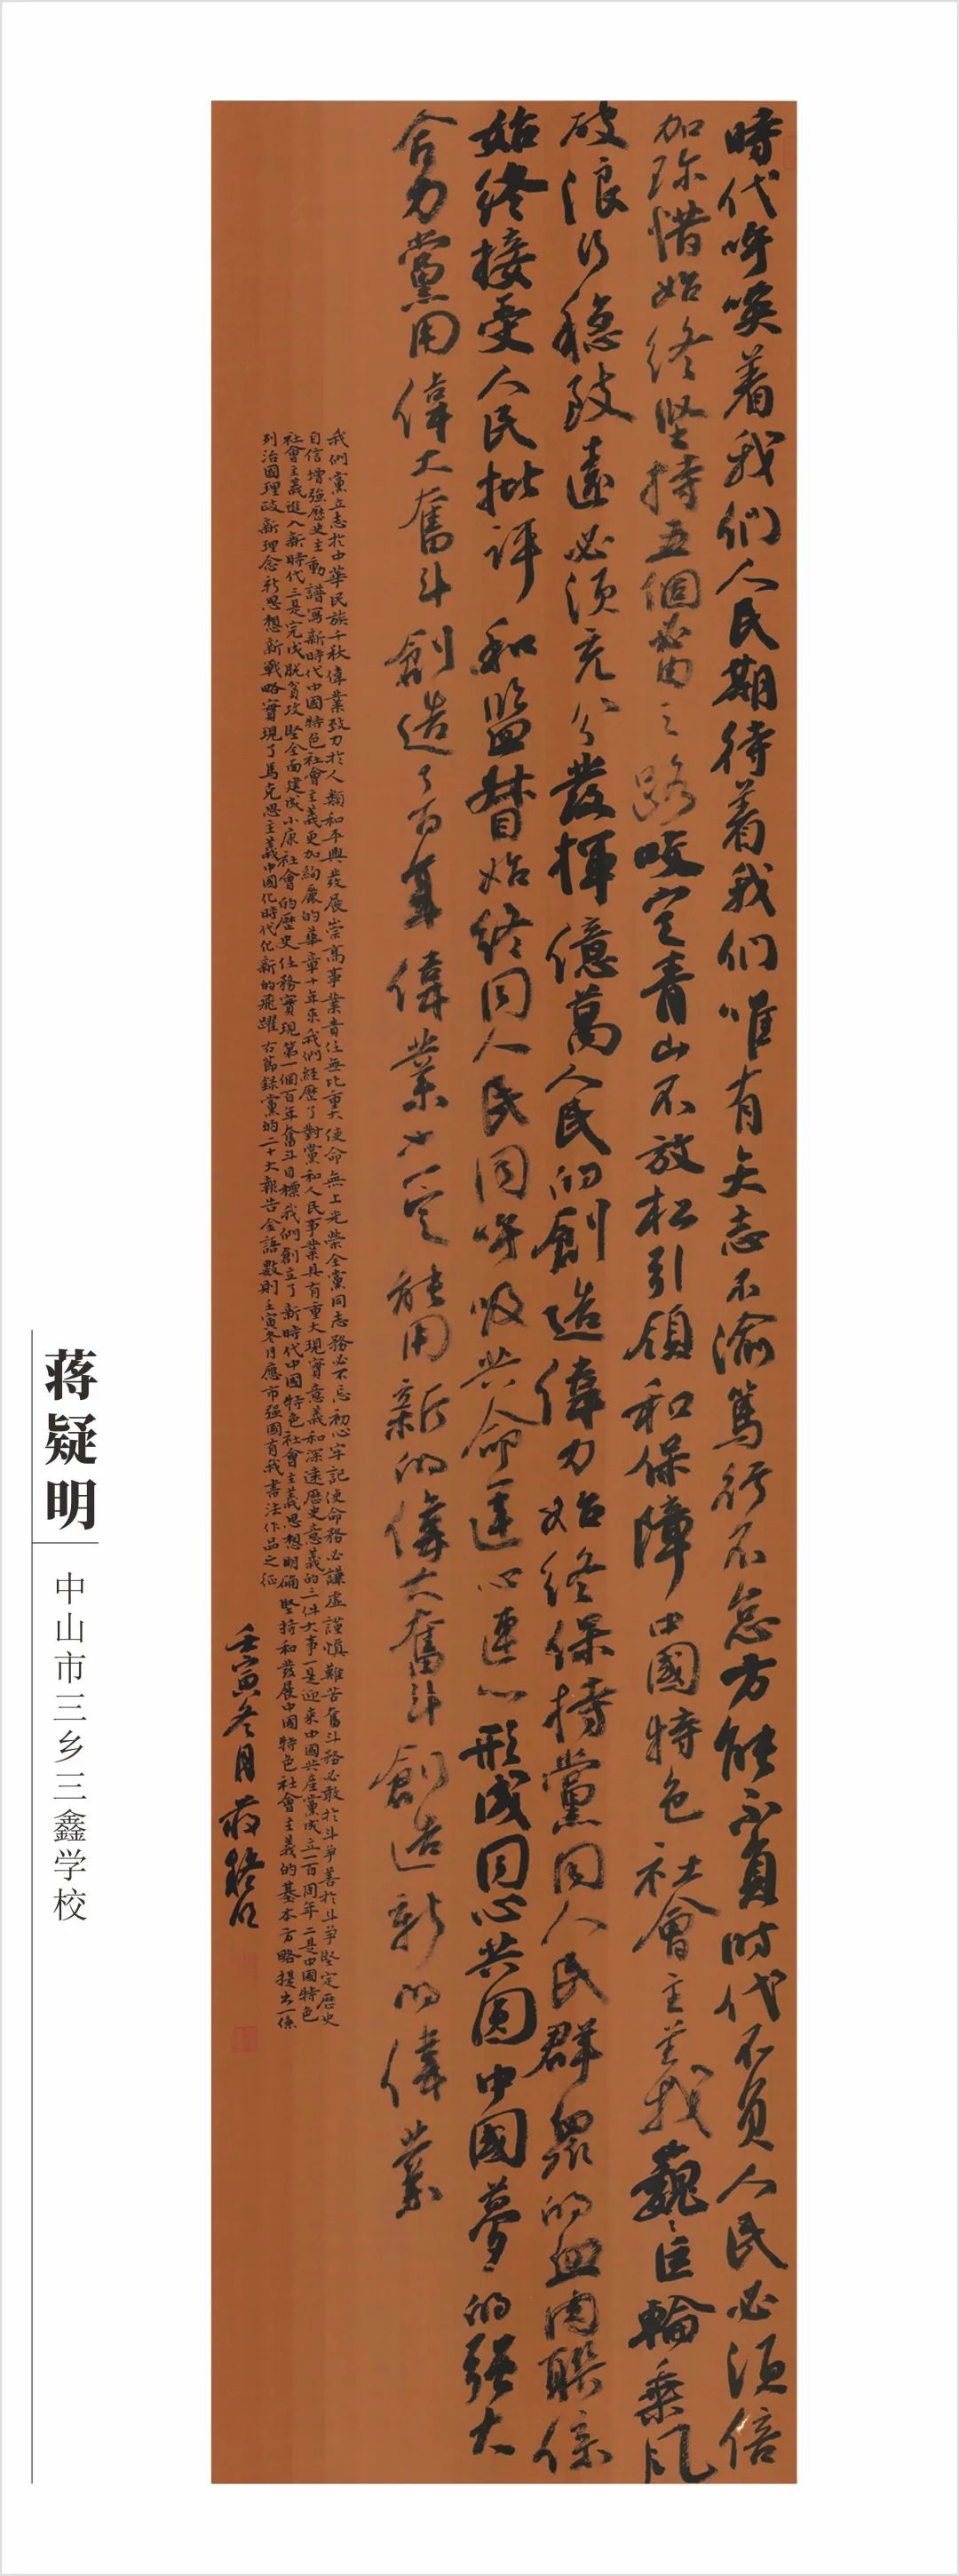 時代呼唤着我们人民期待着我们唯有矢志不渝篤行不怠方能不負时代不負人民必須倍
加珍惜始终堅持五個必由之路咬定青山不放松引領和保障中國特色社會主義巍巍巨輪乘风
破浪行穩致遠必須充分發揮億萬人民的創造偉力始终保持黨同人民群眾的血肉联係
始终接受人民批评和监督始终同人民同呼吸共命運心連心形成同心共圆中國夢的强大
合力黨用偉大奮斗創造了百年偉業也一定能用新的偉大奮斗創造新的偉業
我們黨立志於中華民族千秋偉業致力於人類和平與發展崇高事業責任無比重大使命無上光榮全黨同志務必不忘初心牢記使命務必謙虚謹慎艱苦奮斗務必敢於斗爭善於斗爭堅定歷史
自信增强歷史主動譜寫新時代中國特色社會主義更加絢麗的華章十年來我們經歷了對黨和人民事業具有重大現實意義和深遠歷史意義的三件大事一是迎來中國共産黨成立一百周年二是中國特色
社會主義進入新時代三是完成脱貧攻堅全面建成小康社會的歷史任務實現第一個百年奮斗目標我們創立了新時代中國特色社會主義思想明確堅持和發展中國特色社會主義的基本方略提出一係
列治國理政新理念新思想新戰略實現了馬克思主義中國化時代化新的飛躍右節録黨的二十大報告金語數則壬寅冬月應市强國有我書法作品之征
壬寅冬月蒋疑明
蒋疑明
中山市三乡三鑫学校